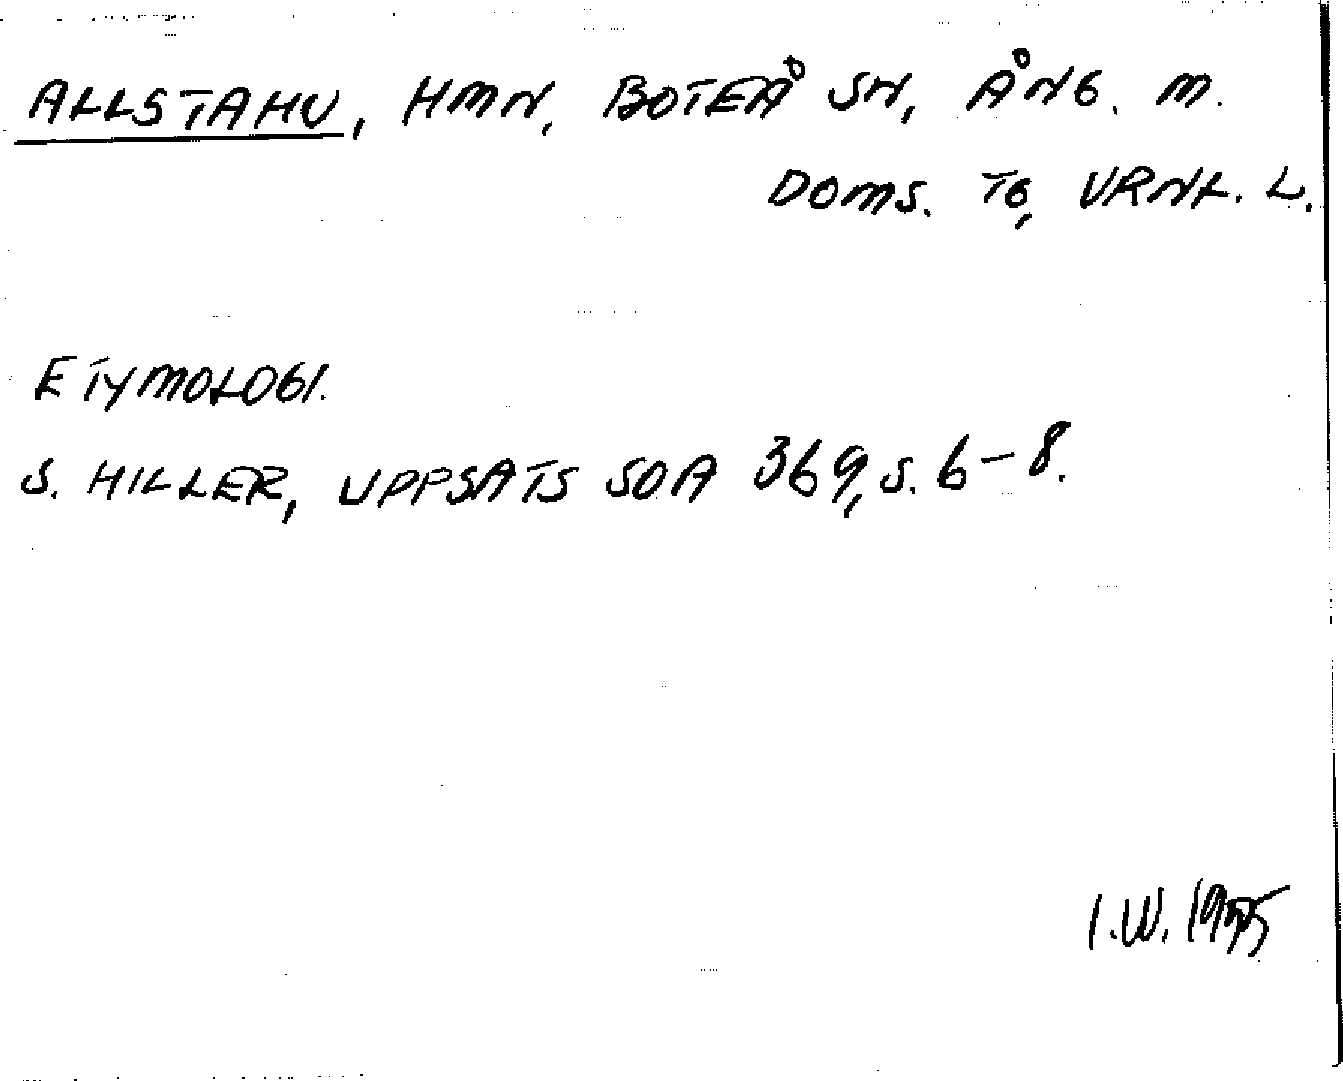 ALLSTAHU, HMN, BOTEÅ SN, ÅNG. M.
DOMS. TG, VRNL. L.
ETYMOLOGI.
S. HILLER, UPPSATS SOA 369, S. 6-8.
I.W.